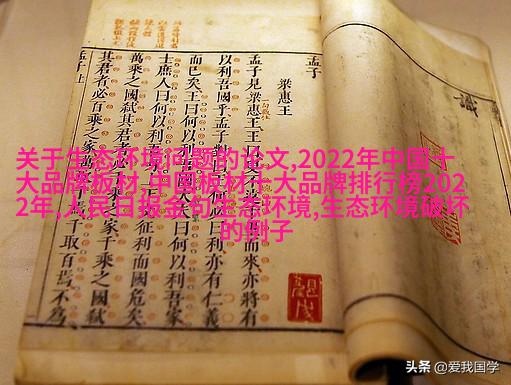 關于生态环境问题的论文,2022年中国十
大品牌板材,中国板材十大品牌排行榜202
2年,人民日报金句生态环境,生态环境破坏
的例子
識
孟子
梁惠王
孟子見梁惠王王曰 而來亦將有
以利吾國乎孟子對曰 亦有仁義
而已矣王曰何以利吾 曰何以利吾家
士庶人曰何以利吾 征利而國危矣
萬乘之國弒其君者 千乘之國弒
其君者必百乘之家 千取百焉不為
孟子上
头条 @爱我国学